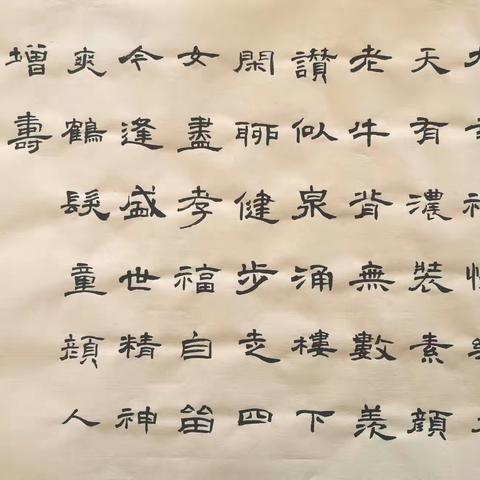 天有濃裝素顏
老牛背無數羨
讚似泉涌樓下
閑聊健步走四
女盡孝福自留
今逢盛世精神
爽鶴髮童顏人
增壽